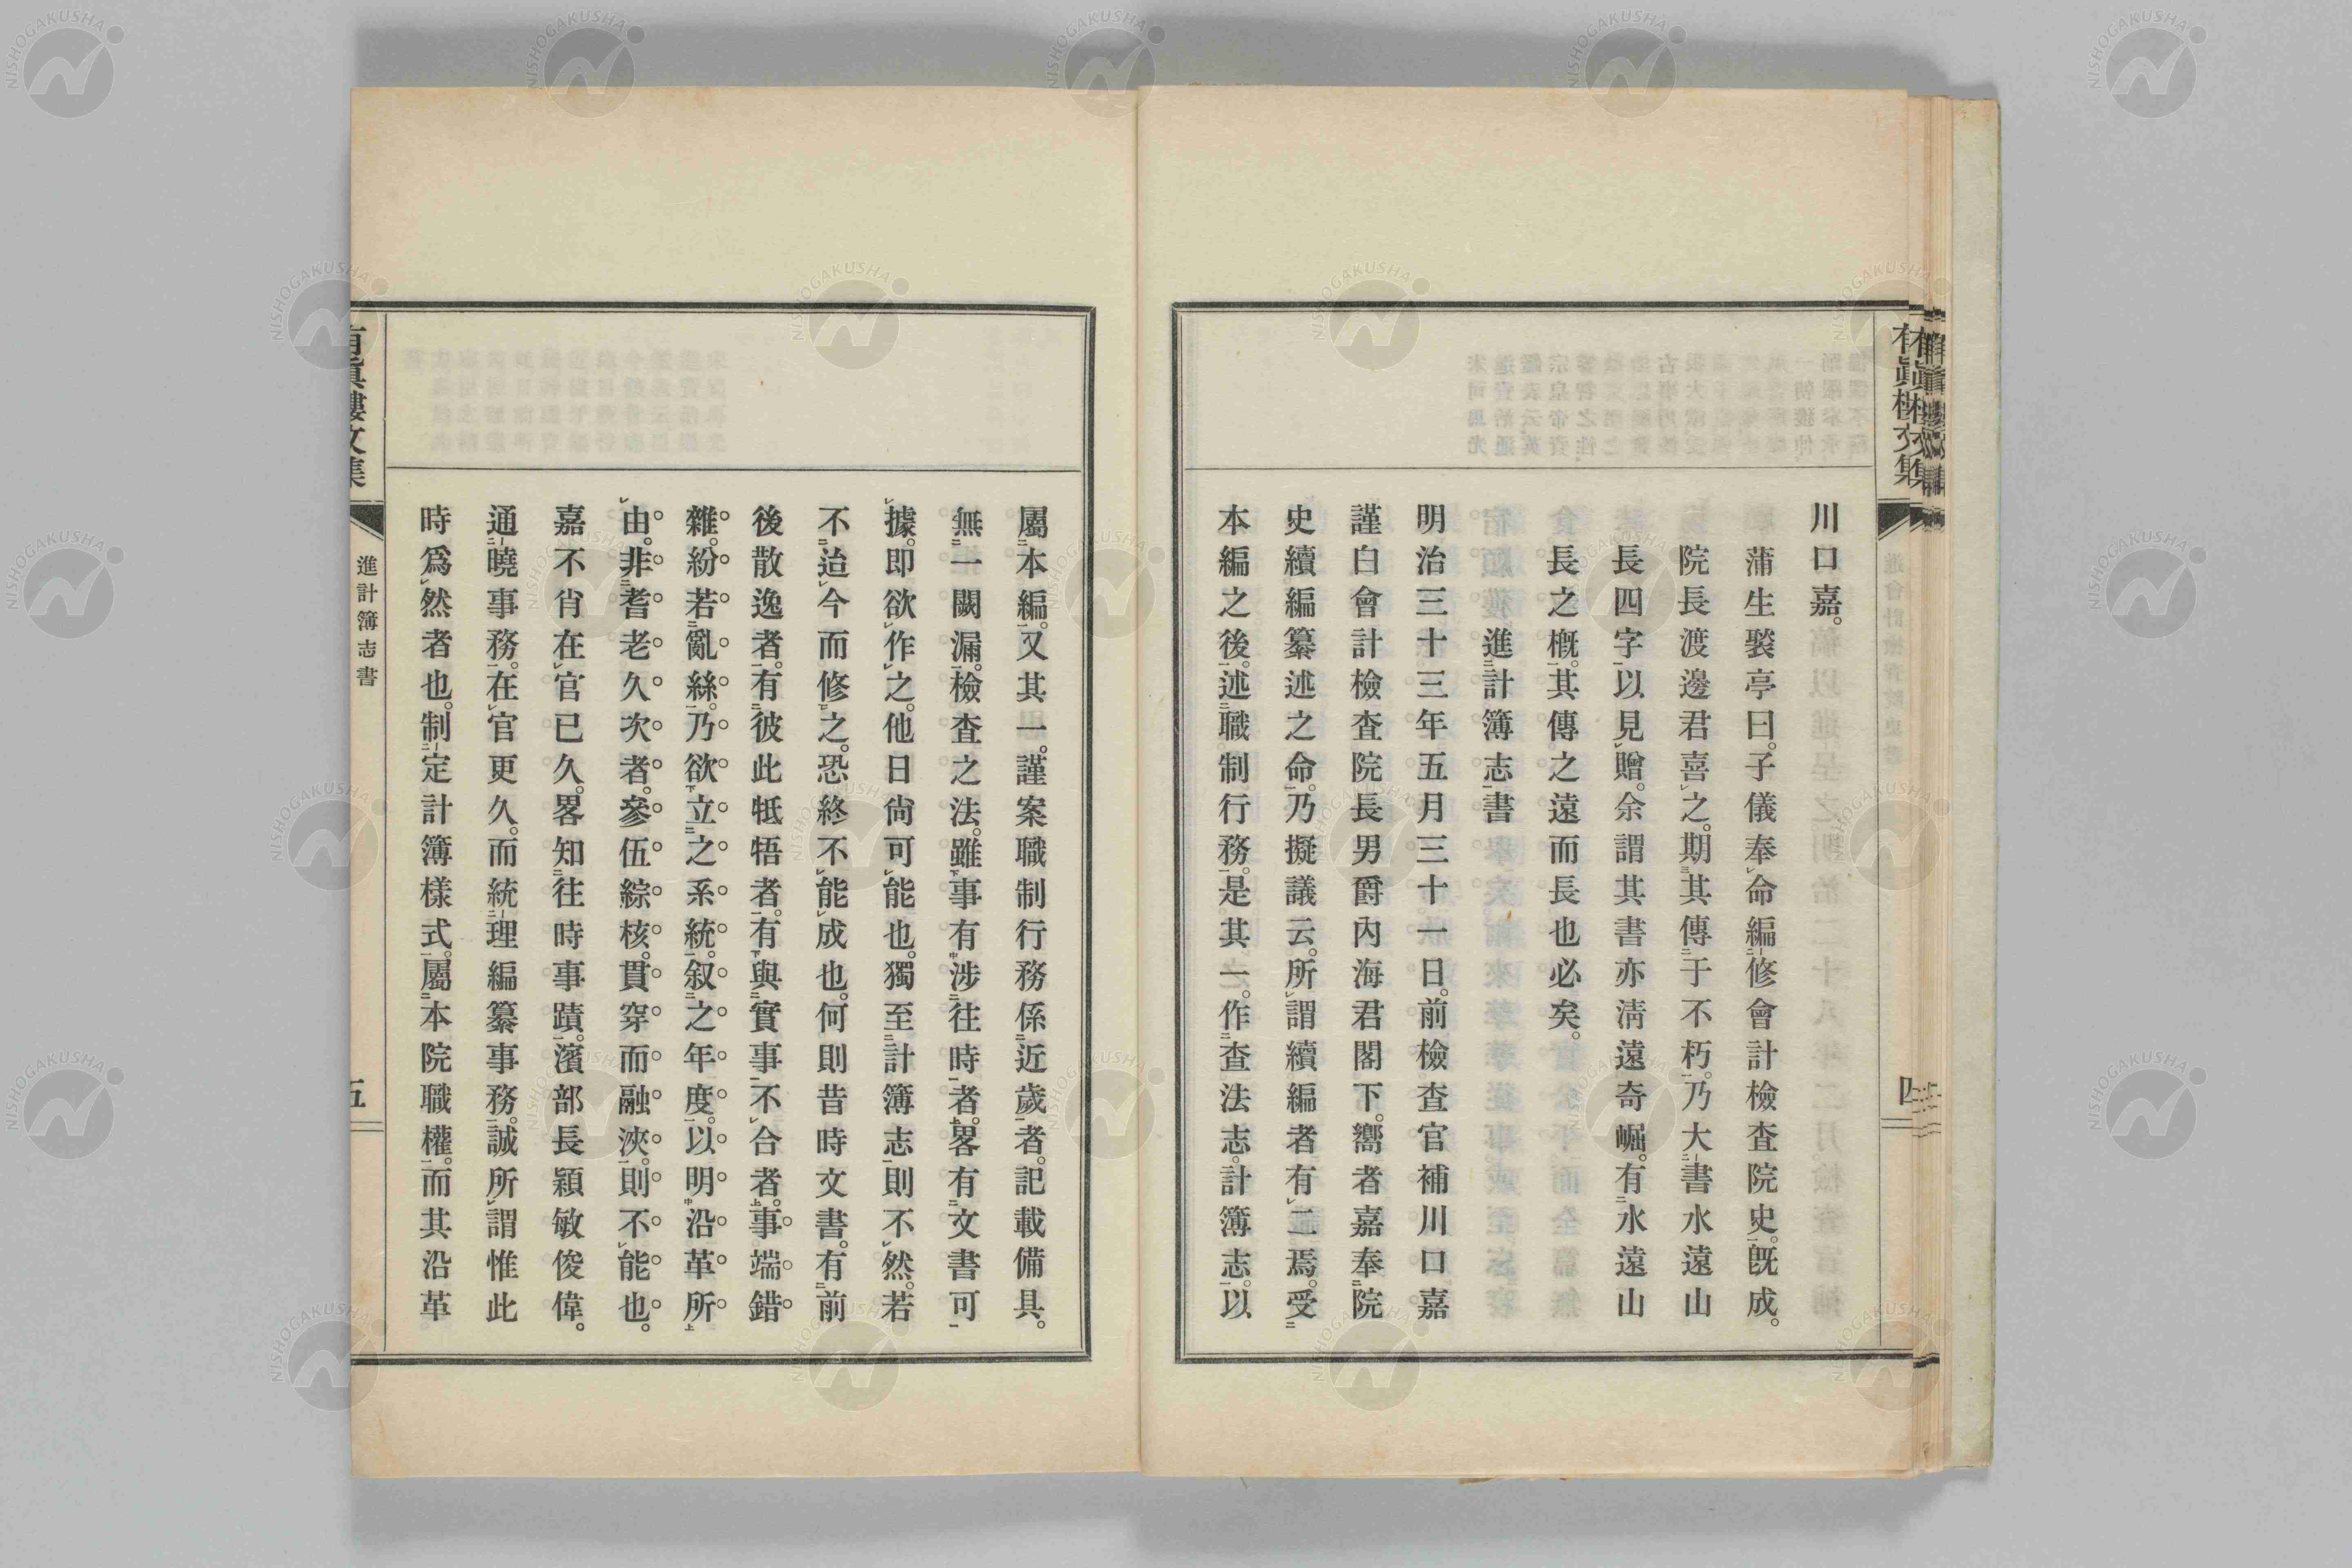 川口嘉。
蒲生褧亭曰。子儀奉命編修會計檢査院史。既成。
院長渡邊君喜之。期其傳于不朽。乃大書水遠山
長四字以見贈。余謂其書亦淸遠奇崛。有水遠山
長之槪。其傳之遠而長也必矣。
進計簿志書
明治三十三年五月三十一日。前檢査官補川口嘉
謹白會計檢査院長男爵內海君閣下。嚮者嘉奉院
史續編纂述之命。乃擬議云。所謂續編者有二焉。受
本編之後。述職制行務。是其一。作查法志。計簿志。以
屬本編。又其一。謹案職制行務係近歲者。記載備具。
無一闕漏。檢查之法。雖事有涉往時者。畧有文書可
據。即欲作之。他日尙可能也。獨至計簿志則不然。若
不迨今而修之。恐終不能成也。何則昔時文書。有前
後散逸者。有彼此牴牾者。有與實事不合者。事端錯
雜。紛若亂絲。乃欲立之系統。叙之年度。以明沿革所
由。非耆老久次者。參伍綜核。貫穿而融浹。則不能也。
嘉不肖在官已久。畧知往時事蹟。濱部長穎敏俊偉。
通曉事務。在官更久。而統理編纂事務。誠所謂惟此
時爲然者也。制定計簿樣式。屬本院職權。而其沿革
有眞樓文集
四
有眞樓文集
進計簿志書
五
NISHOGAKUSHA